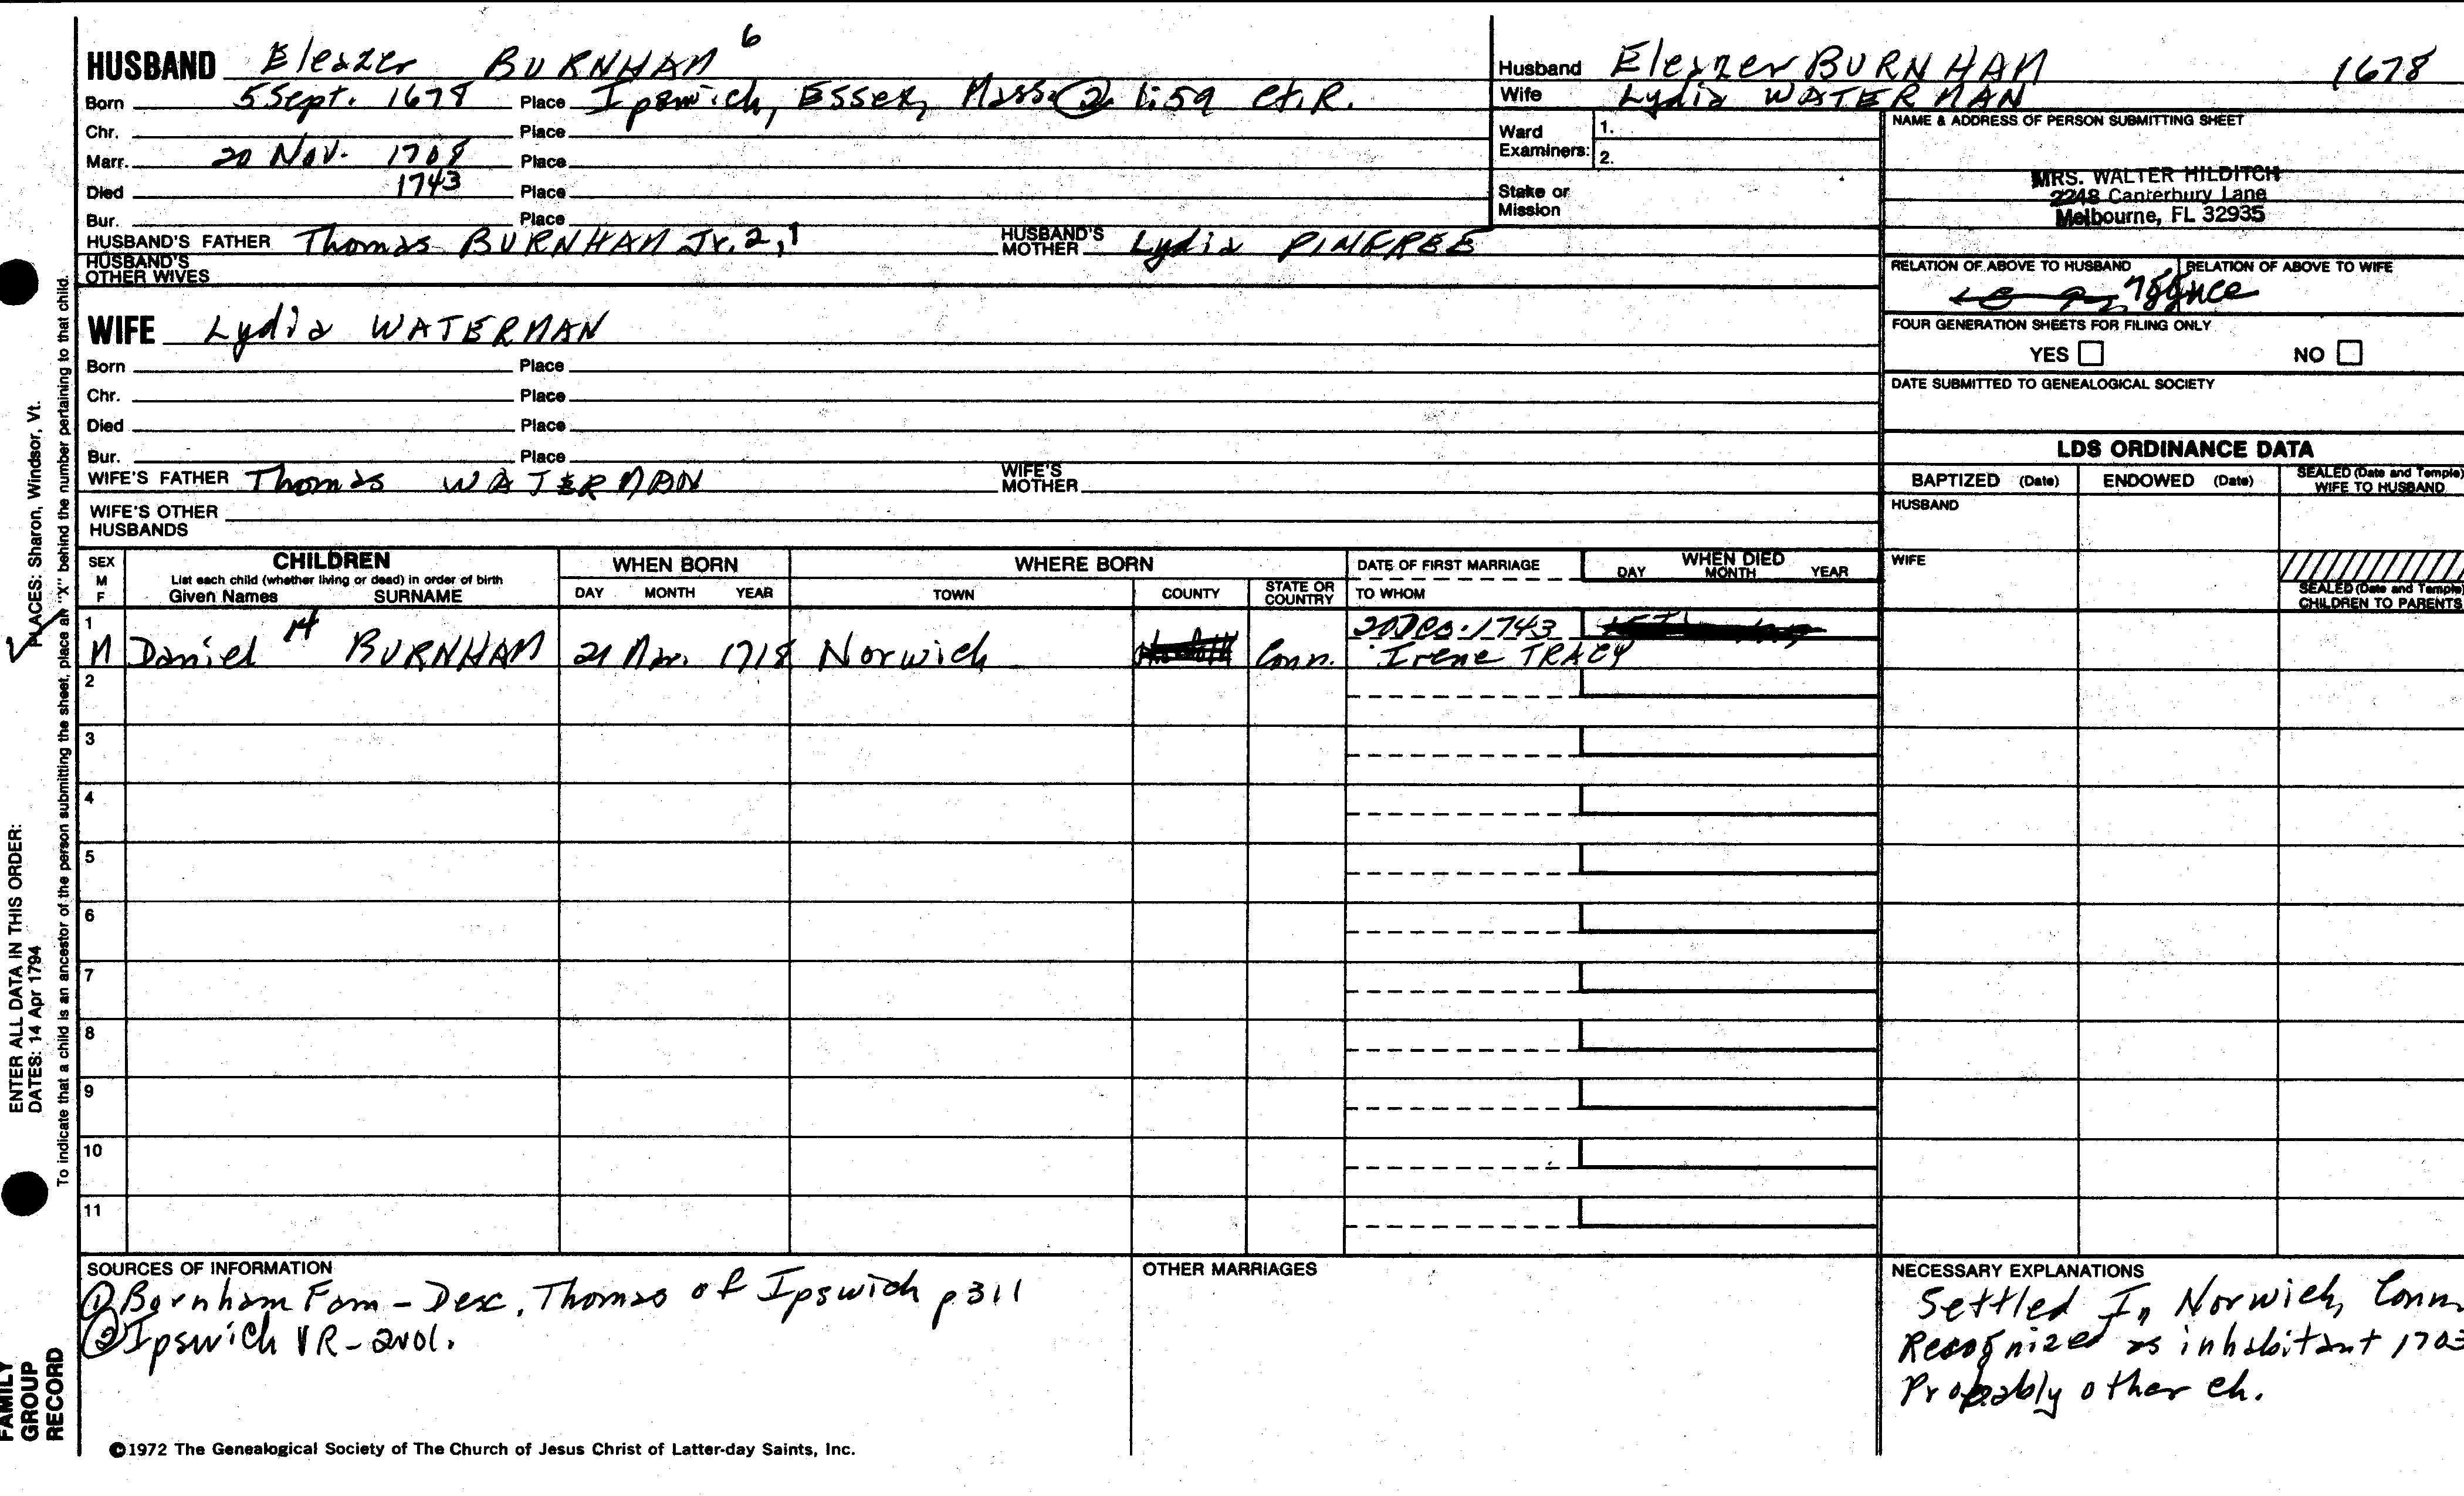 HUSBAND Eleazer BURNHAM 6
Born 5 Sept. 1678 Place Ipswich, Essex, Mass. ② 1:59 Ct.R.
Chr. Place
Marr. 20 Nov. 1708 Place
Died 1743 Place
Bur. Place
HUSBAND'S FATHER Thomas BURNHAM Jr. 2, 1 HUSBAND'S MOTHER Lydia PINGREE
HUSBAND'S OTHER WIVES
WIFE Lydia WATERMAN
Born Place
Chr. Place
Died Place
Bur. Place
WIFE'S FATHER Thomas WATERMAN WIFE'S MOTHER
WIFE'S OTHER HUSBANDS
Husband Eleazer BURNHAM 1678
Wife Lydia WATERMAN
Ward Examiners: 1.
2.
Stake or Mission
NAME & ADDRESS OF PERSON SUBMITTING SHEET
MRS. WALTER HILDITCH
2248 Canterbury Lane
Melbourne, FL 32935
RELATION OF ABOVE TO HUSBAND RELATION OF ABOVE TO WIFE
FOUR GENERATION SHEETS FOR FILING ONLY
YES NO
DATE SUBMITTED TO GENEALOGICAL SOCIETY
LDS ORDINANCE DATA
BAPTIZED (Date) ENDOWED (Date) SEALED (Date and Temple) WIFE TO HUSBAND
HUSBAND
WIFE
SEALED (Date and Temple) CHILDREN TO PARENTS
SEX M F CHILDREN
List each child (whether living or dead) in order of birth
Given Names SURNAME
WHEN BORN
DAY MONTH YEAR
WHERE BORN
TOWN COUNTY STATE OR COUNTRY
DATE OF FIRST MARRIAGE
TO WHOM
WHEN DIED
DAY MONTH YEAR
1
20 Dec. 1743
M Daniel BURNHAM 21 Mar. 1718 Norwich Conn. Irene TRACY
2
3
4
5
6
7
8
9
10
11
SOURCES OF INFORMATION
① Burnham Fam - Desc. Thomas of Ipswich p 311
② Ipswich VR - 2vol.
OTHER MARRIAGES
NECESSARY EXPLANATIONS
Settled In Norwich, Conn
Recognized as inhabitant 1703
Probably other ch.
©1972 The Genealogical Society of The Church of Jesus Christ of Latter-day Saints, Inc.
FAMILY
GROUP
RECORD
ENTER ALL DATA IN THIS ORDER:
DATES: 14 Apr 1794
PLACES: Sharon, Windsor, Vt.
To indicate that a child is an ancestor of the person submitting the sheet, place an "X" behind the number pertaining to that child.